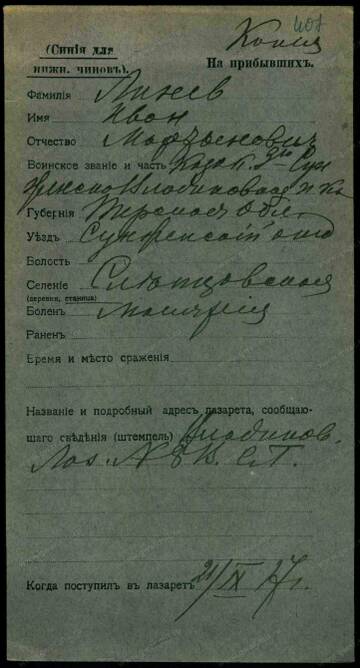 407
Копия
(Синія для
нижн. чиновъ).
На прибывшихъ.
Фамилія Линев
Имя Иван
Отчество
Воинское званіе и часть Казак 2го Сун
женско Владикавказ п Ка
Губернія Терская Обл.
Уѣздъ Сунженский отд
Волость
Селеніе Слепцовская
(деревня, станица)
Боленъ Малярия
Раненъ
Время и мѣсто сраженія
Названіе и подробный адресъ лазарета, сообщаю-
щаго свѣдѣнія (штемпель) Владиков.
Лаз. № 8 В. С. Г.
Когда поступилъ въ лазаретъ 21/IX 17 г.